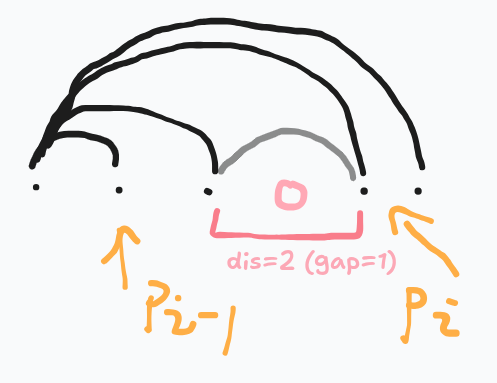 dis=2 (gap=1)
Pi-1
Pi